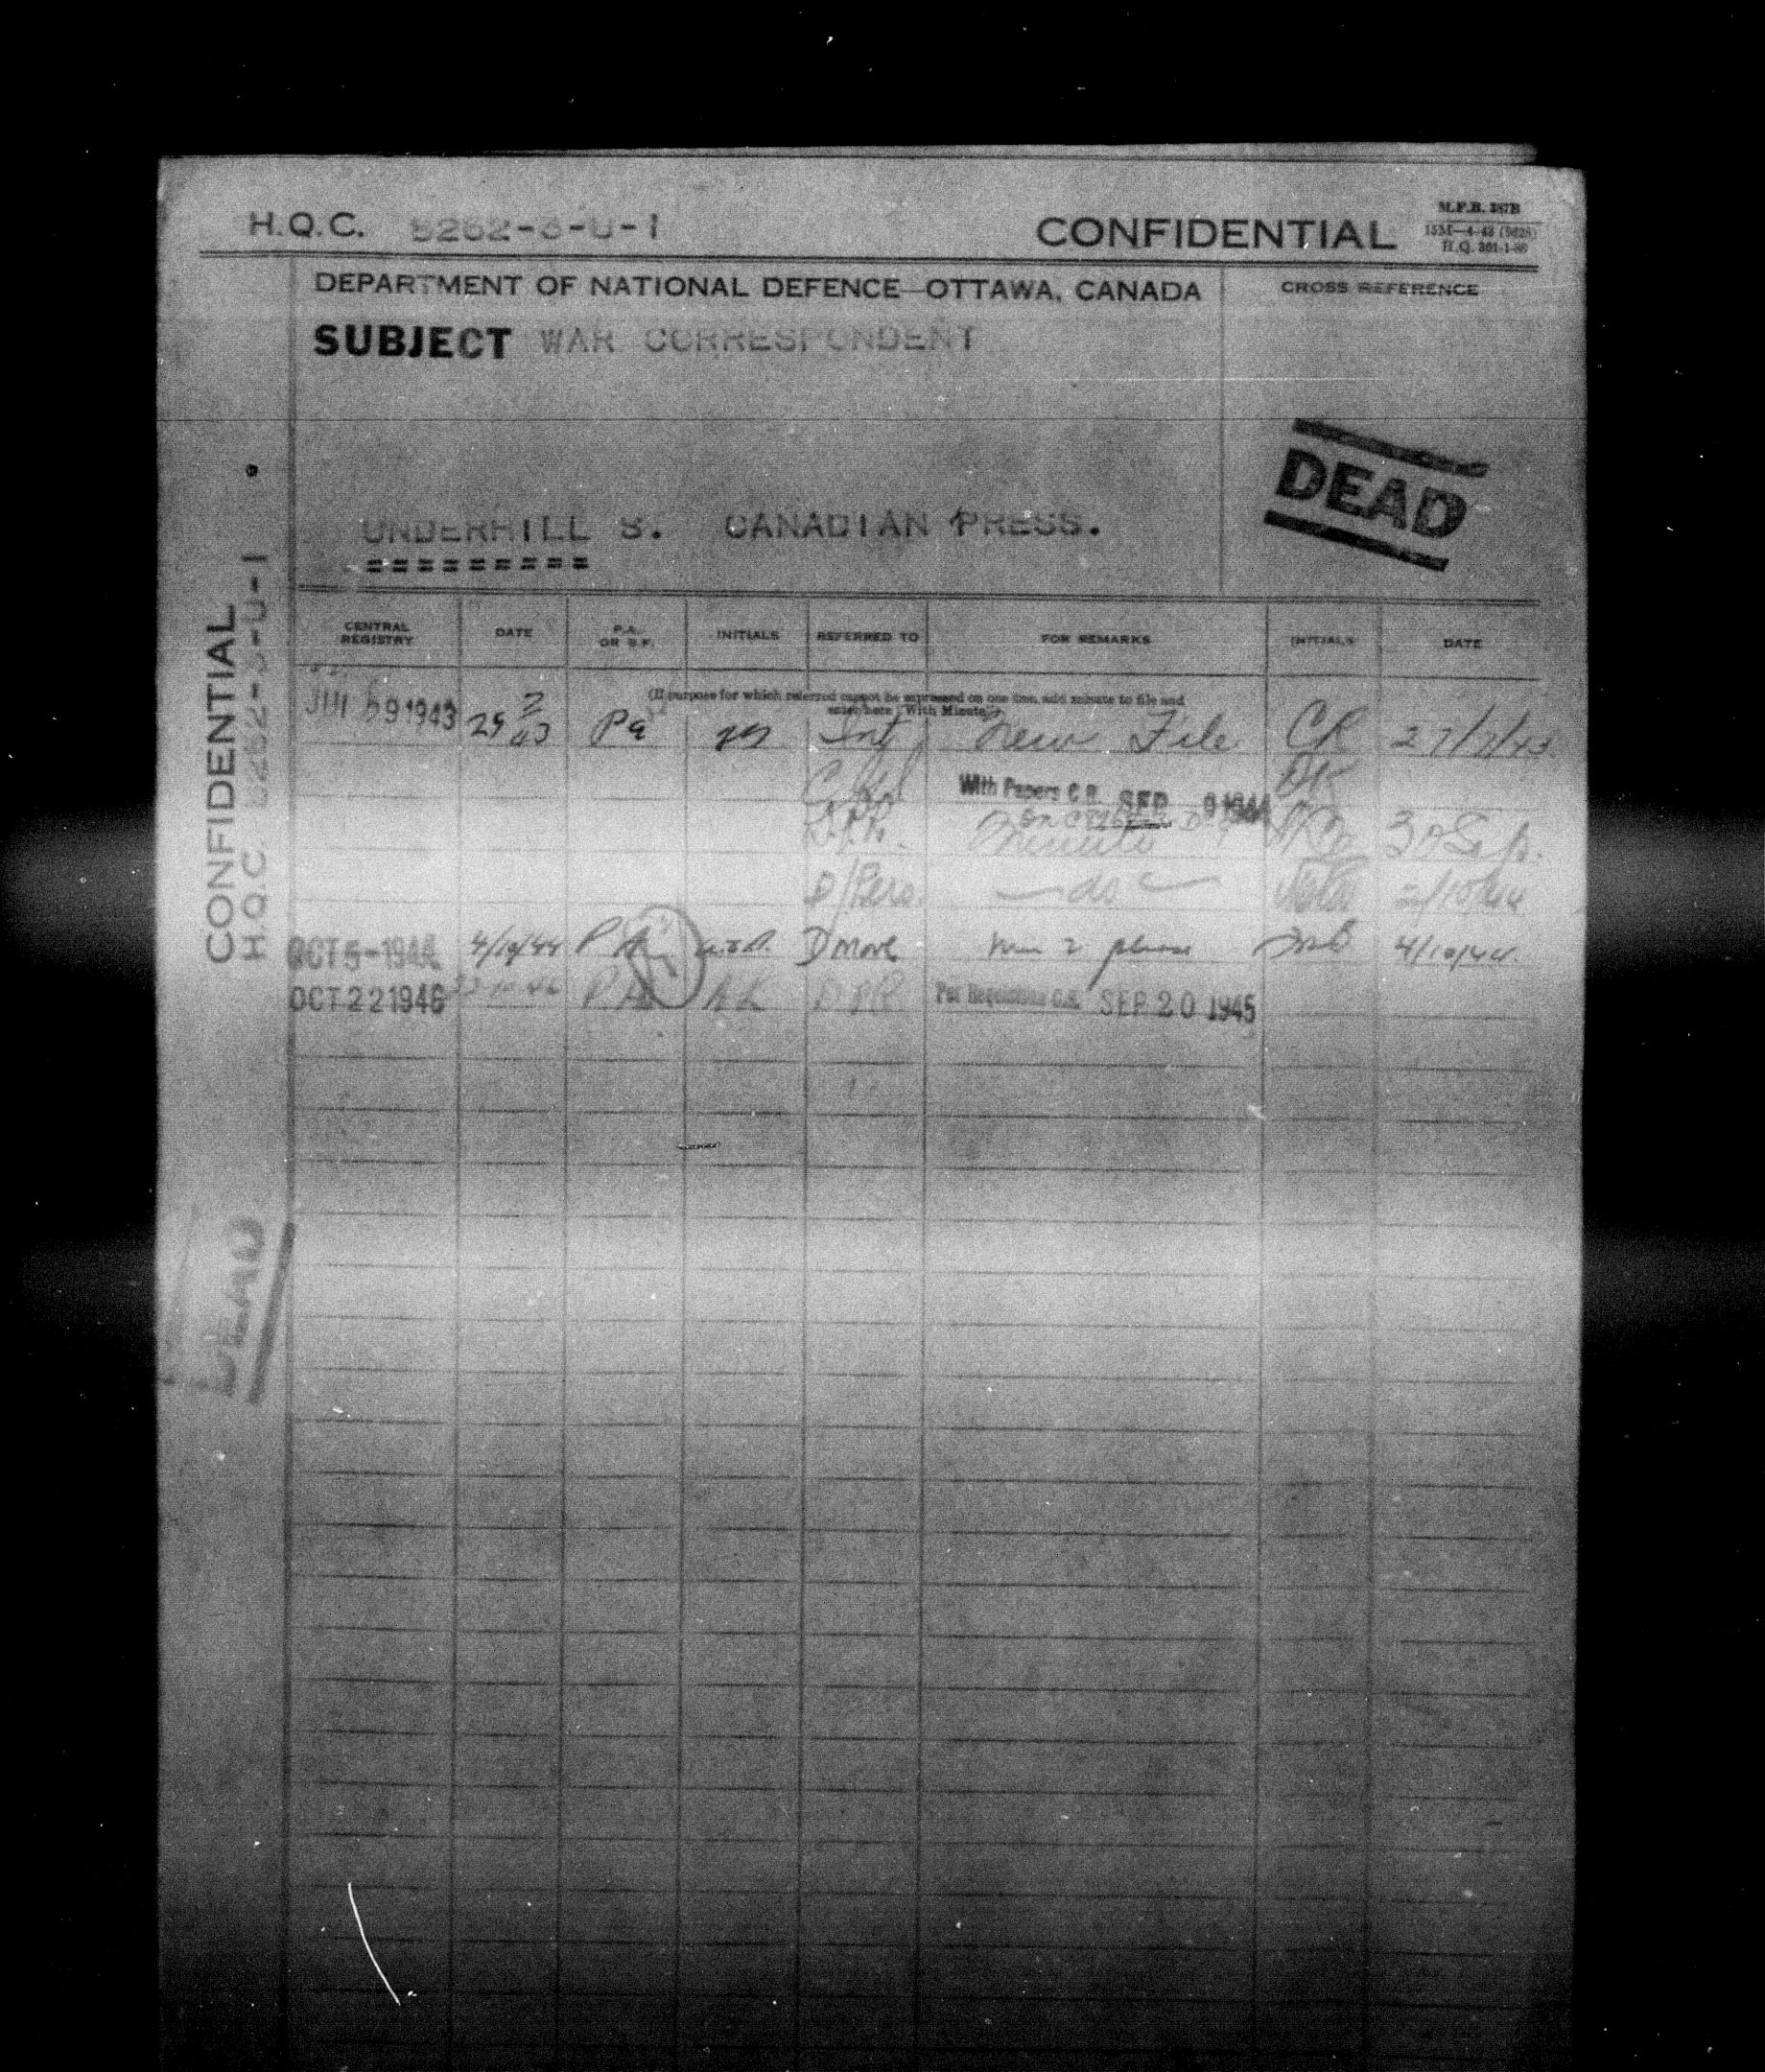 H.Q.C. 5262-3-U-1
CONFIDENTIAL
M.F.B. 387B
15M—4-43 (9628)
H.Q. 301-1-80
DEPARTMENT OF NATIONAL DEFENCE—OTTAWA, CANADA
CROSS REFERENCE
SUBJECT WAR CORRESPONDENT
DEAD
UNDERHILL S. CANADIAN PRESS.
=========
CONFIDENTIAL
H.Q.C. 5262-3-U-1
CENTRAL REGISTRY DATE P.A. OR B.F. INITIALS REFERRED TO FOR REMARKS INITIALS DATE
(If purpose for which referred cannot be expressed on one line, add minute to file and
enter here "With Minute")
1943 29 7/43 Pa Int New File CR 27/7/43
With Papers C.R. SEP 9 1944
D.P.R. Minute
D/Pers. — do — 2/10/44
OCT 5-1944 4/10/44 P A D Mov min 2 please 4/10/44
OCT 22 1946 P A AK DPR Per Requisition C.R. SEP 20 1945
DEAD